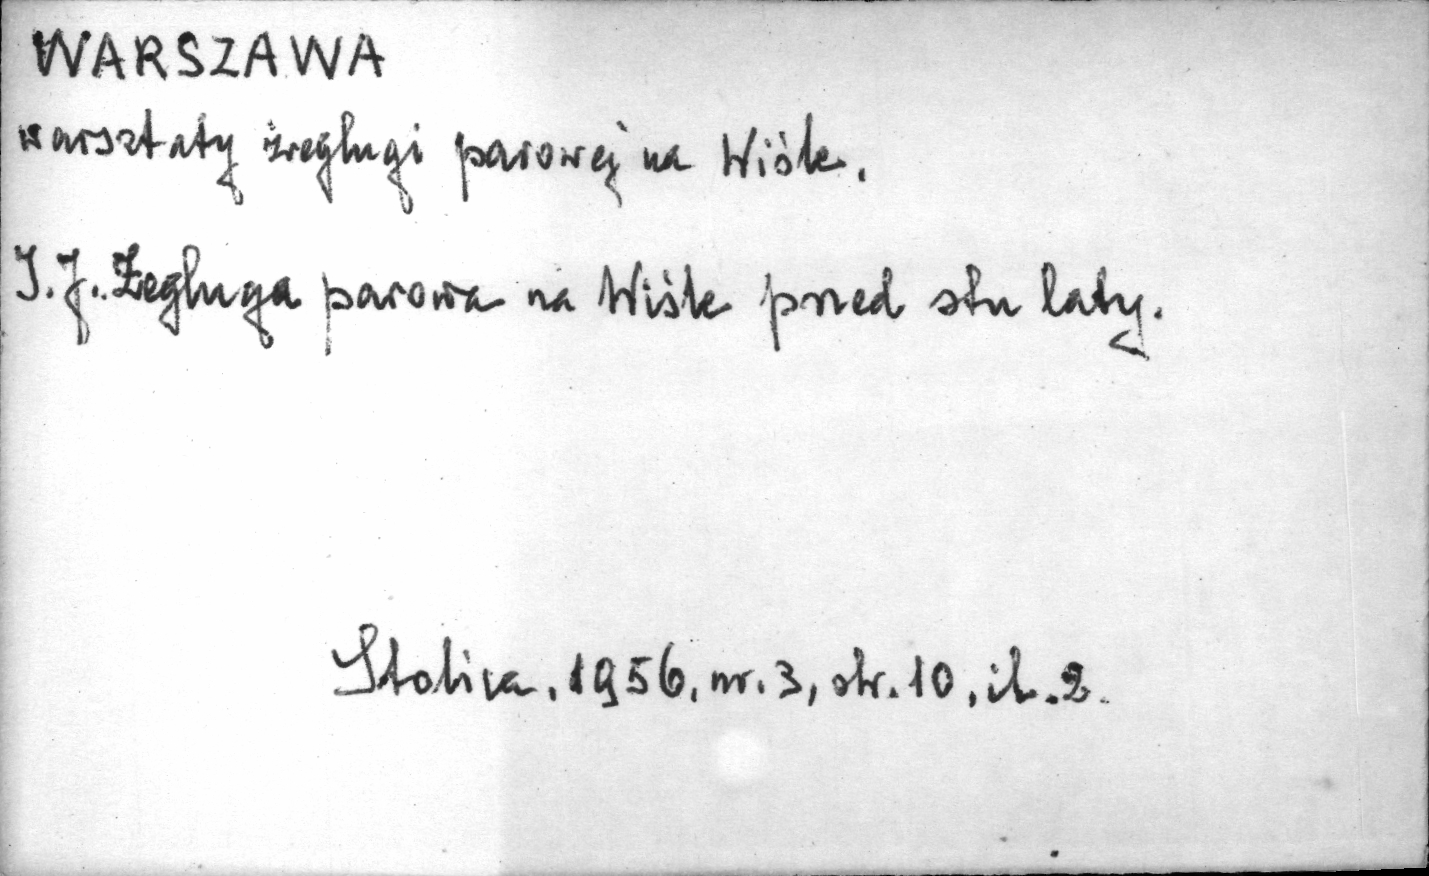 WARSZAWA
warsztaty żeglugi parowej na Wiśle.
J. J. Żegluga parowa na Wiśle przed stu laty.
Stolica. 1956. nr. 3, str. 10, il. 2.